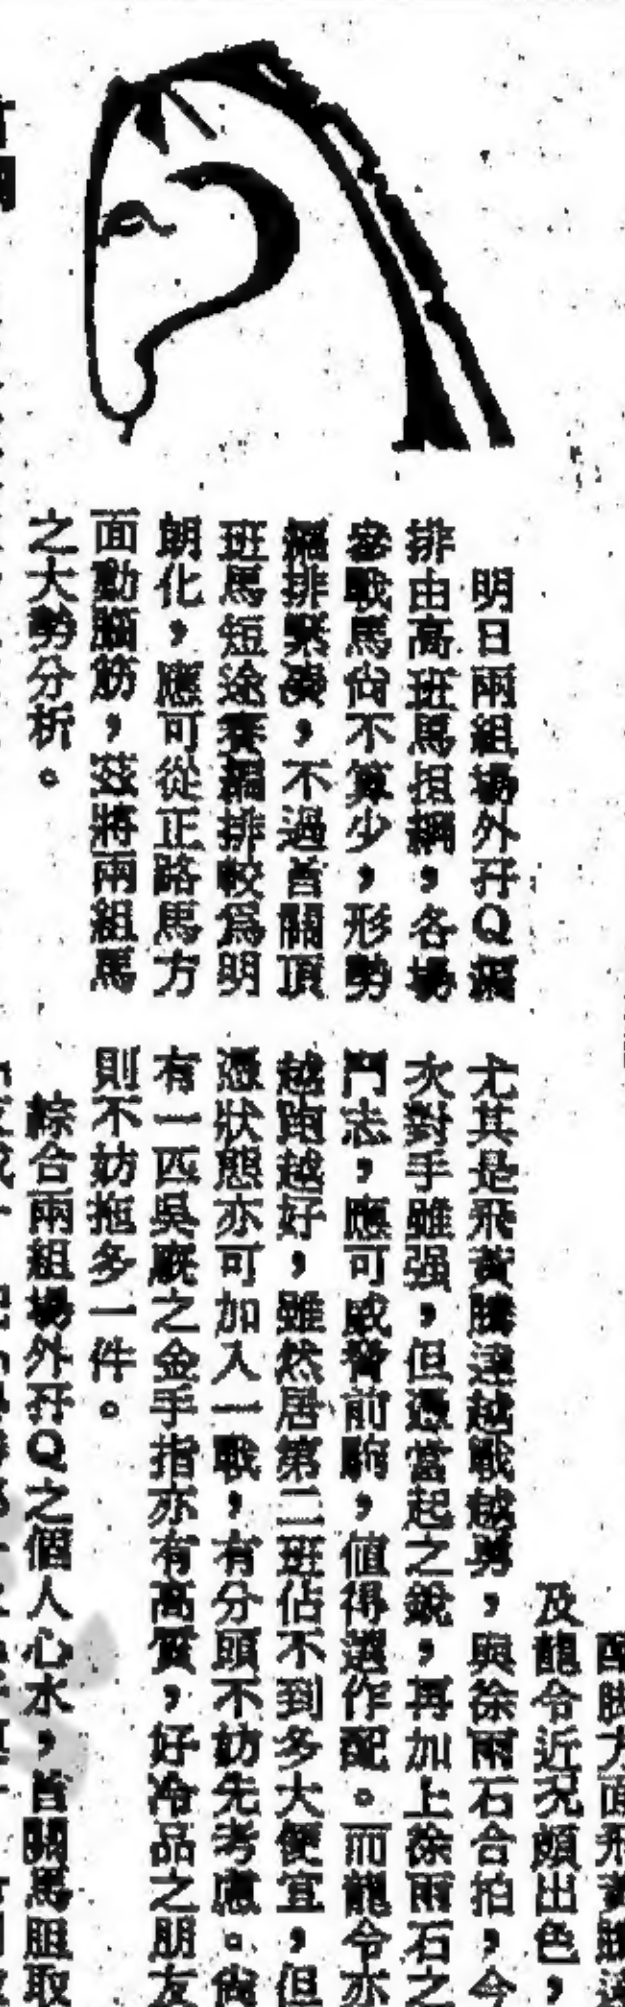 明日兩組場外孖Q編
排由高班馬担綱，各場
參戰馬尚不算少，形勢
編排緊湊，不過首關頂
班馬短途賽編排較爲明
朗化，應可從正路馬方
面動腦筋，茲將兩組馬
之大勢分析。
配脚方面飛黃騰達
及龍令近況頗出色，
尤其是飛黃騰達越戰越勇，與徐雨石合拍，今
次對手雖强，但憑當起之銳，再加上徐雨石之
鬥志，應可威脅前駒，值得選作配。而龍令亦
越跑越好，雖然居第二班佔不到多大便宜，但
憑狀態亦可加入一戰，有分頭不妨先考慮。尙
有一匹吳廐之金手指亦有高質，好冷品之朋友
則不妨拖多一件。
綜合兩組場外孖Q之個人心水，首關馬胆取